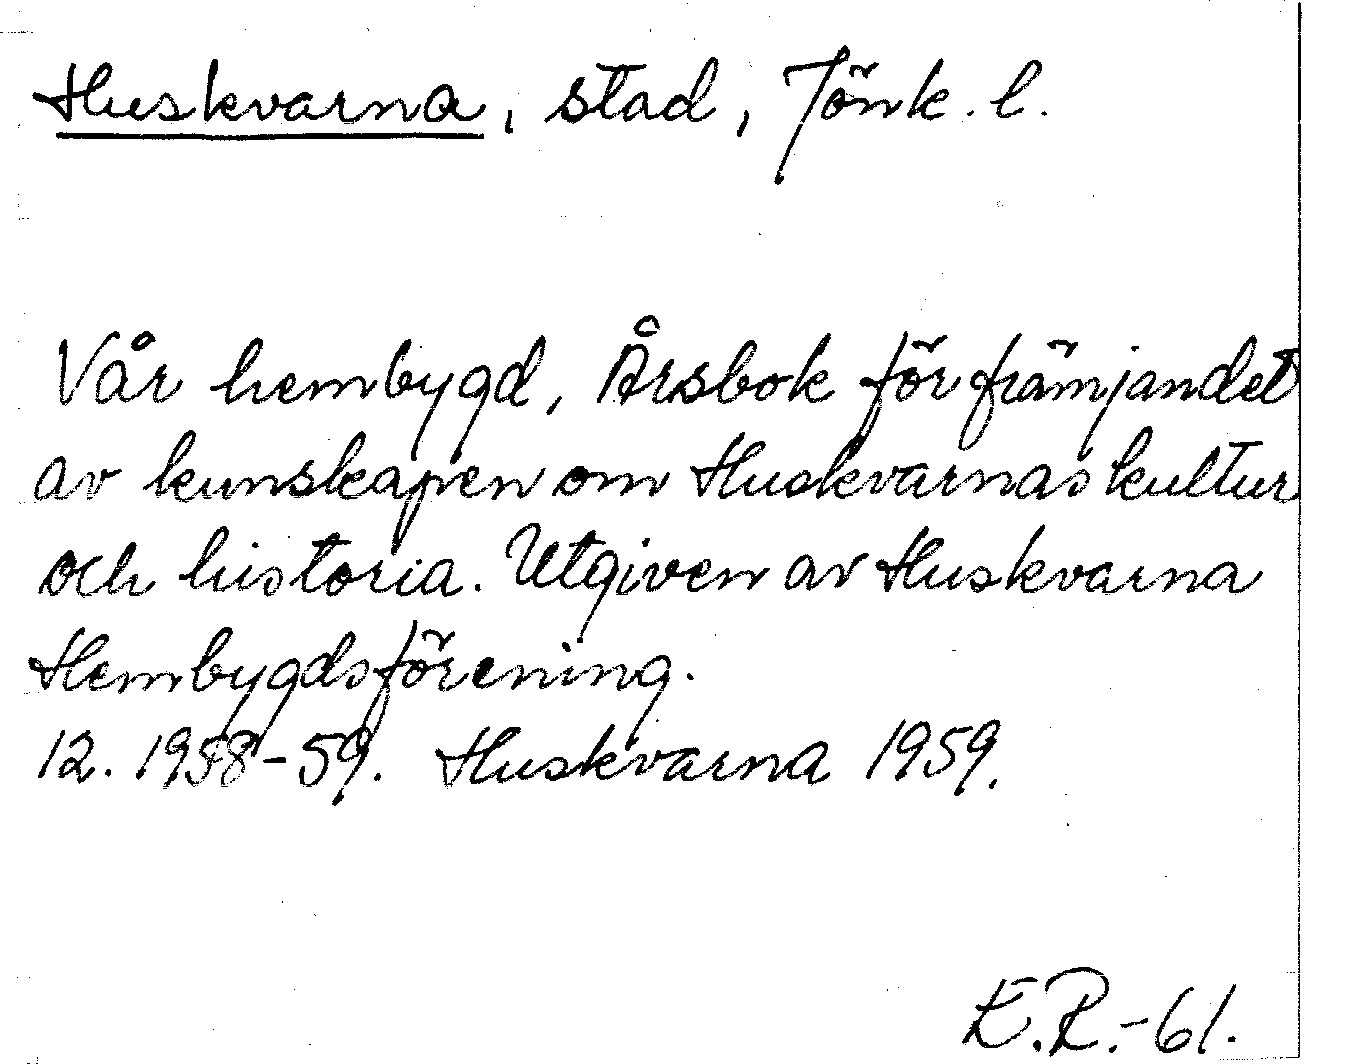 Huskvarna, stad, Jönk. l.
Vår hembygd, Årsbok för främjandet
av kunskapen om Huskvarnas kultur
och historia. Utgiven av Huskvarna
Hembygdsförening.
12. 1958-59. Huskvarna 1959.
E.R.-61.